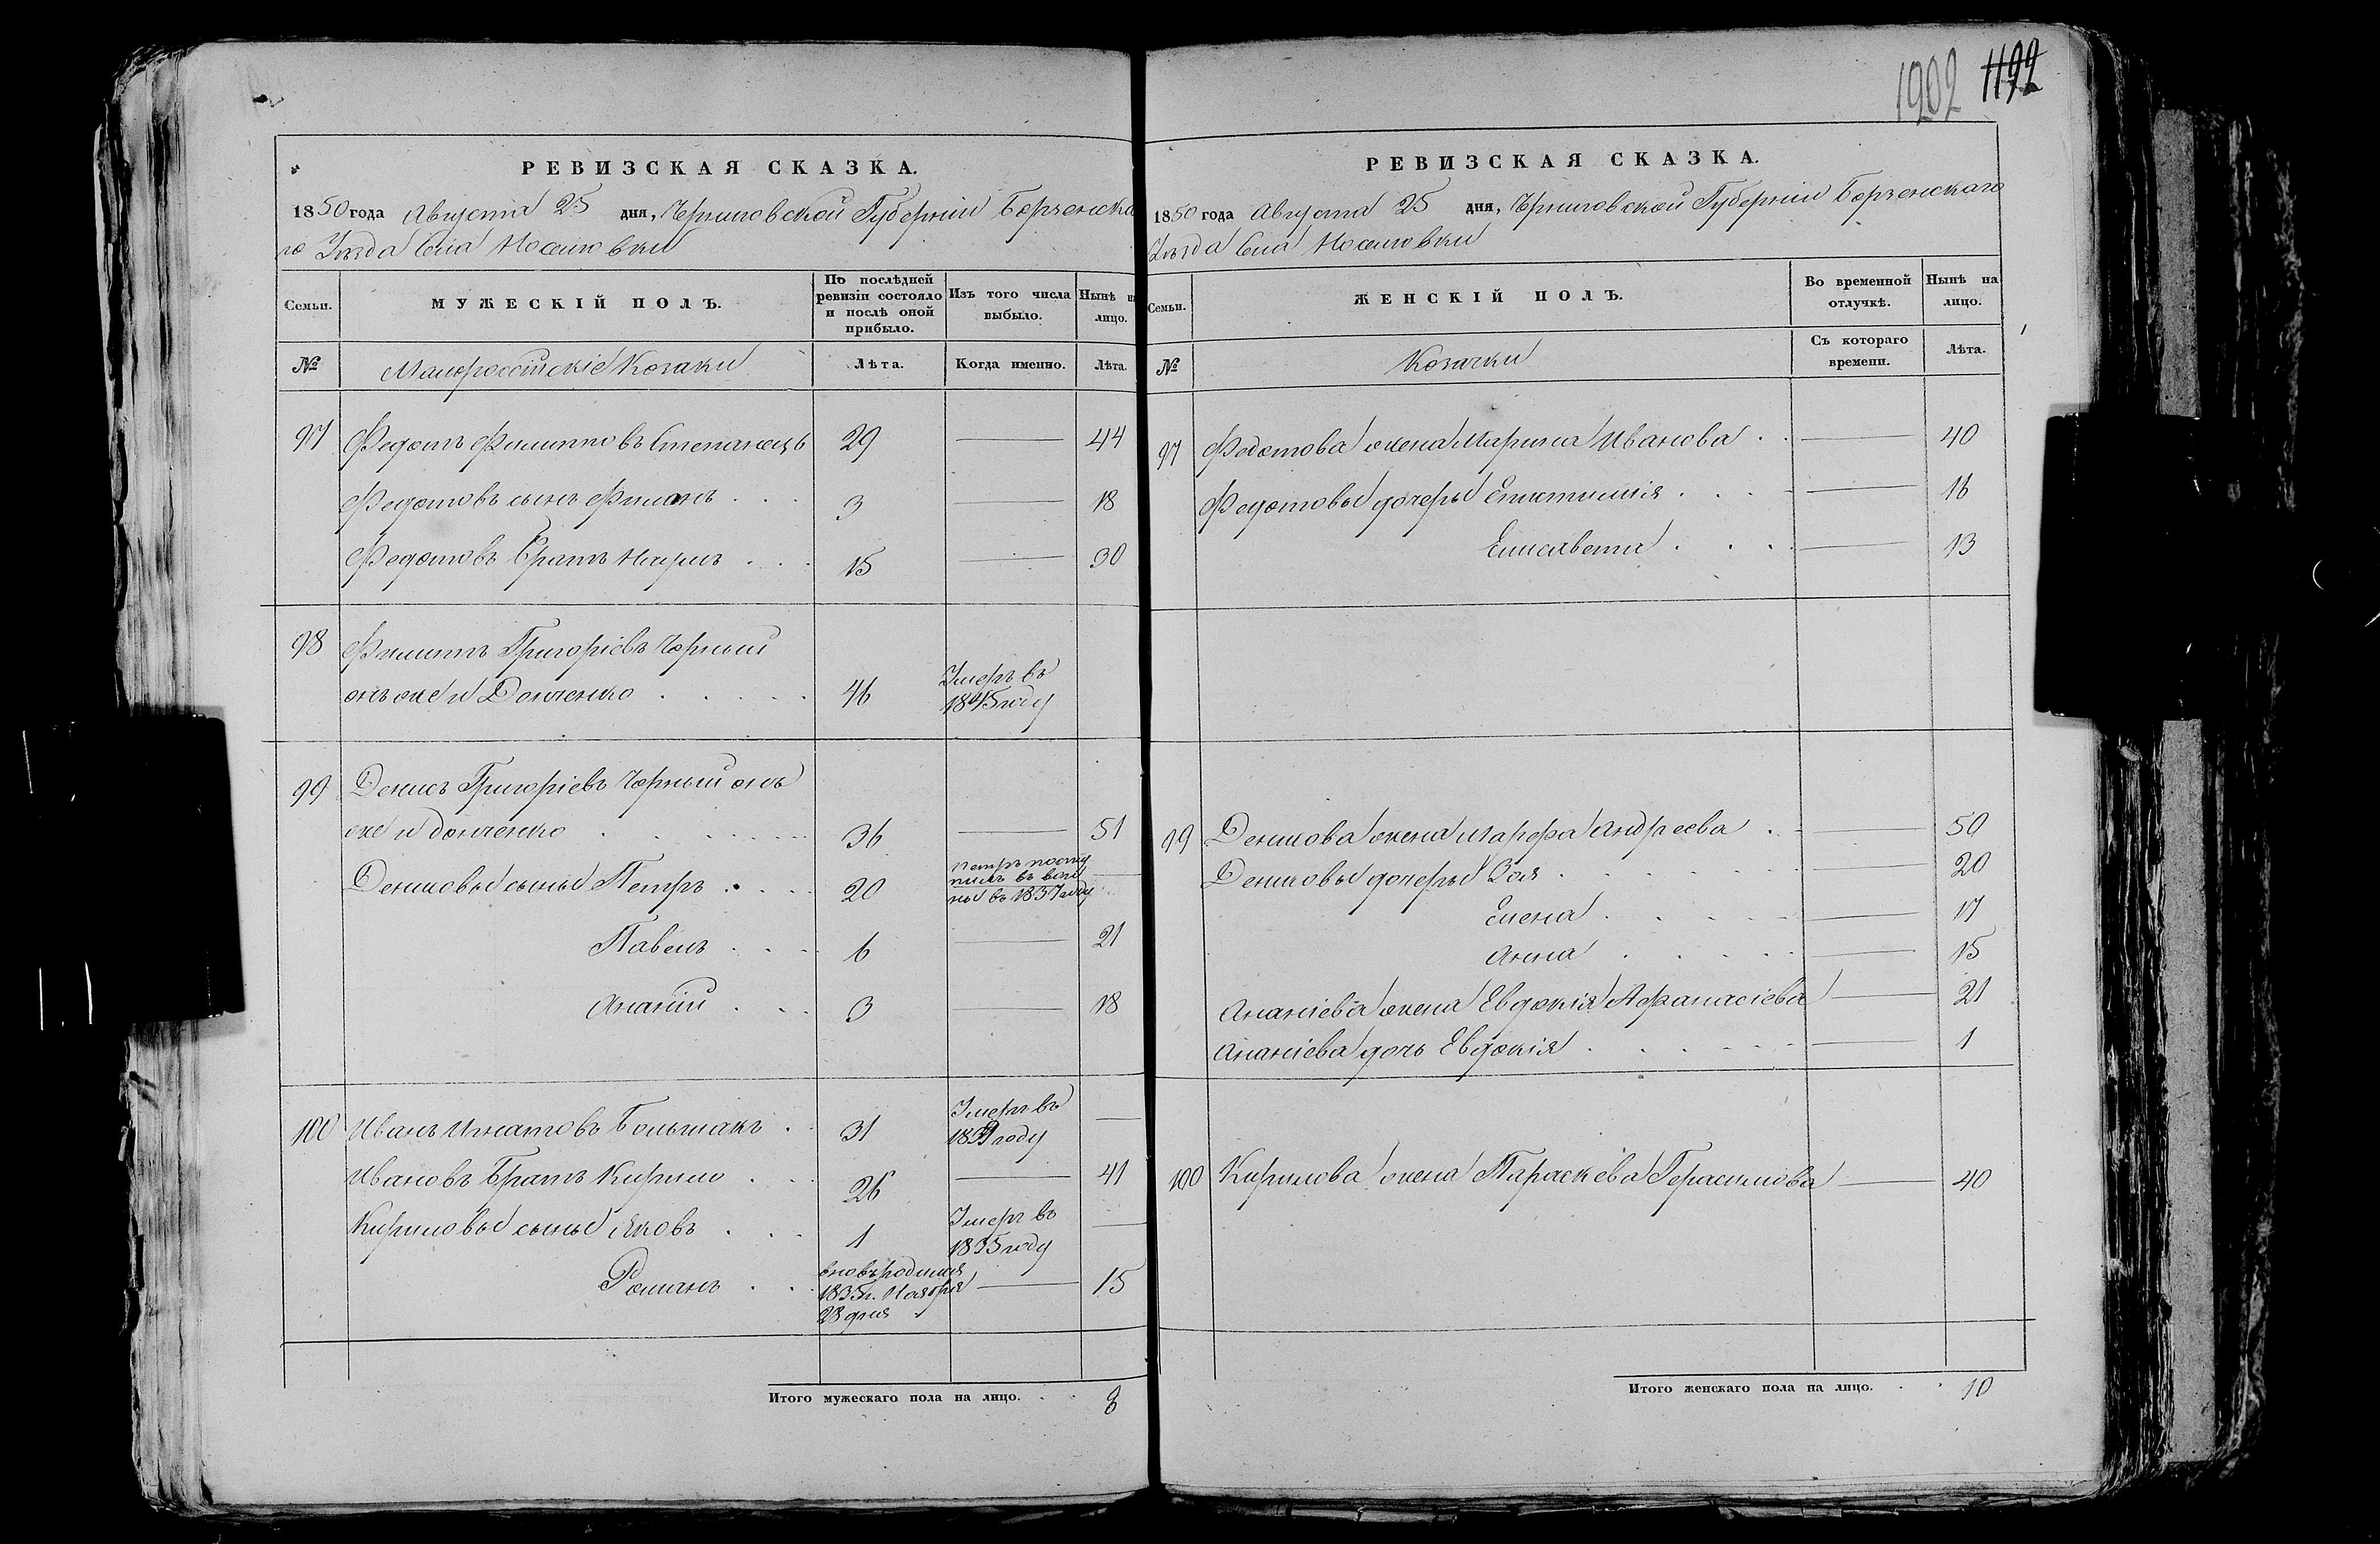 1902 1192
РЕВИЗСКАЯ СКАЗКА.
1850 года Августа 25 дня, Черниговской Губерніи Борзенска
го Уѣзда Села
Семьи.
МУЖЕСКІЙ ПОЛЪ.
По послѣдней ревизіи состояло и послѣ оной прибыло.
Изъ того числа выбыло.
Нынѣ на лицо.
№ Малороссійскіе Козаки Лѣта. Когда именно. Лѣта.
97 Федотъ Филиповъ Степанецъ 29 — 44
Федотовъ сынъ 3 — 18
Федотовъ братъ 15 — 30
98 Филипъ Григоріевъ Чорный
онъ же и Донченко 46 Умеръ въ 1845 году
99 Денисъ Григоріевъ Чорный онъ
же и Донченко 36 — 51
Денисовы сыны Петръ 20 Петръ посту
пилъ въ вои
ны въ 1837 году —
Павелъ 6 — 21
Ананій 3 — 18
100 Иванъ Игнатовъ Большакъ 31 Умеръ въ 1839 году —
Ивановъ братъ Кирило 26 — 41
Кириловы сыны Яковъ 1 Умеръ въ 1835 году —
Романъ вновьродился 1835 г. Ноября 28 дня — 15
Итого мужескаго пола на лицо. 8
РЕВИЗСКАЯ СКАЗКА.
1850 года Августа 25 дня, Черниговской Губерніи Борзенскаго
Уѣзда Села
Семьи.
ЖЕНСКІЙ ПОЛЪ.
Во временной отлучкѣ.
Нынѣ на лицо.
№ Козачки Съ котораго времени. Лѣта.
97 Федотова жена Марина Иванова — 40
Федотовы дочеры Епистимія — 16
Елисавета — 13
99 Денисова жена Марфа Андреева — 50
Денисовы дочеры Зоя — 20
Елена — 17
Анна — 15
Ананіева жена Евдокія Афанасіева — 21
Ананіева дочь Евдокія — 1
100 Кирилова жена Параскева Герасимова — 40
Итого женскаго пола на лицо. 10